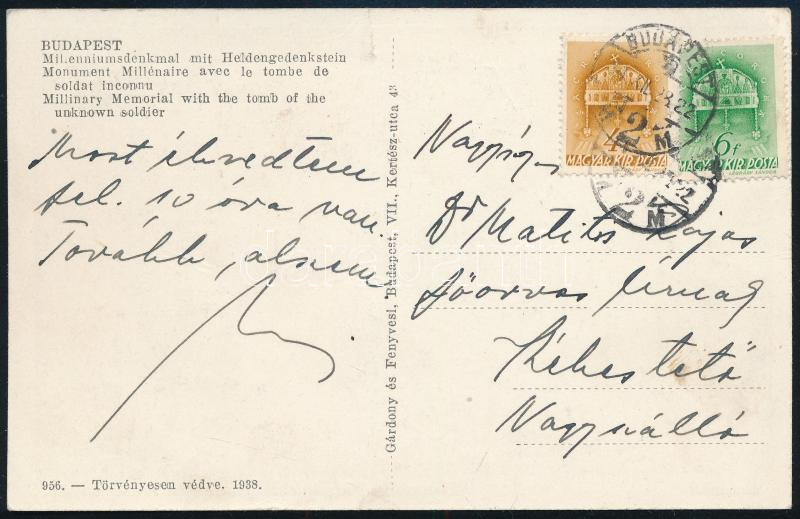 BUDAPEST
Millenniumsdenkmal mit Heldengedenkstein
Monument Millénaire avec le tombe de
soldat inconnu
Millinary Memorial with the tomb of the
unknown soldier
Most
fel. 10 óra van.
Tovább, alszem
956. — Törvényesen védve. 1938.
Gárdony és Fenyvesi, Budapest, VII., Kertész-utca 43
BUDAPEST
2
M
4f
MAGYAR KIR. POSTA
6f
MAGYAR KIR. POSTA
LÉGRÁDY SÁNDOR
Nagys
Dr Lajos
főorvos Úrnak
Kékestető
Nagyszálló